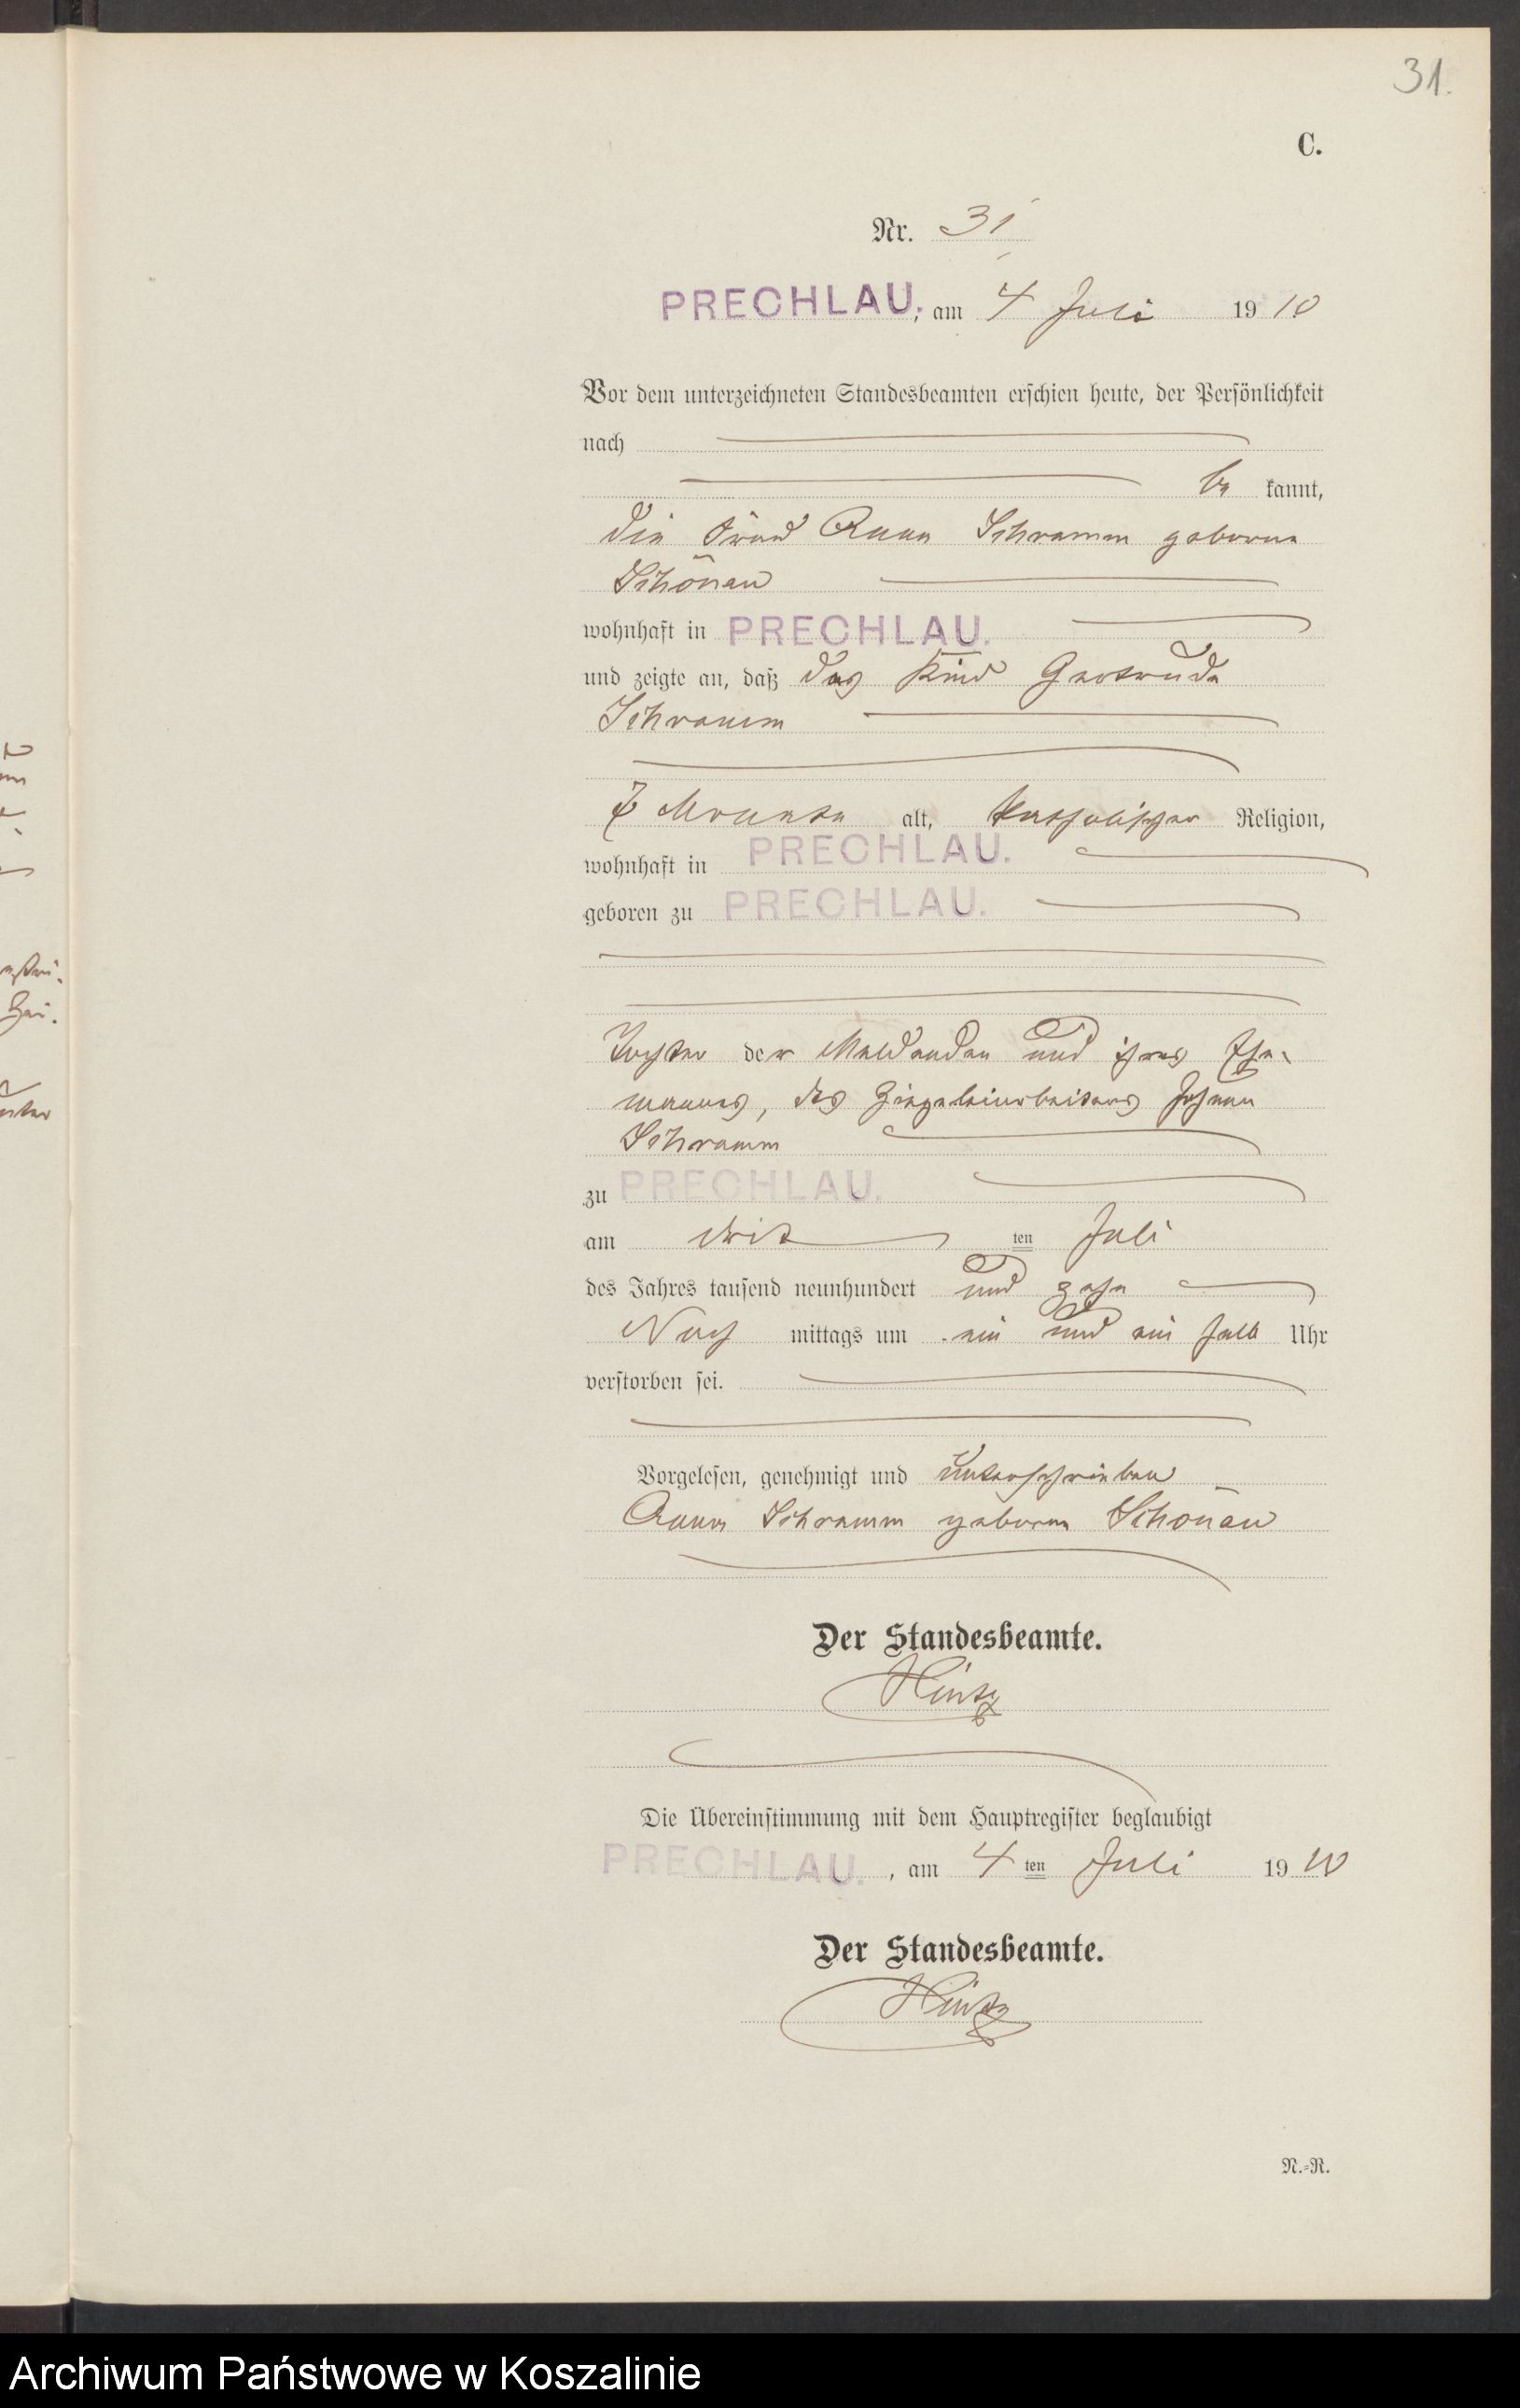 31.
C.
Nr. 31
PRECHLAU, am 4 Juli 1910
Vor dem unterzeichneten Standesbeamten erschien heute, der Persönlichkeit
nach
be kannt,
die Frau Anna Schramm geborene
Schönau
wohnhaft in PRECHLAU.
und zeigte an, daß das Kind Gertrude
Schramm
7 Monate alt, katholischer Religion,
wohnhaft in PRECHLAU.
geboren zu PRECHLAU.
Tochter der Meldenden und ihres Ehe-
mannes, des Ziegeleiarbeiters Johann
Schramm
zu PRECHLAU.
am drit ten Juli
des Jahres tausend neunhundert und zehn
Nach mittags um ein und ein halb Uhr
verstorben sei.
Vorgelesen, genehmigt und unterschrieben
Anna Schramm geborene Schönau
Der Standesbeamte.
Hintz
Die Übereinstimmung mit dem Hauptregister beglaubigt
PRECHLAU., am 4 ten Juli 1910
Der Standesbeamte.
Hintz
N.=R.
Archiwum Państwowe w Koszalinie